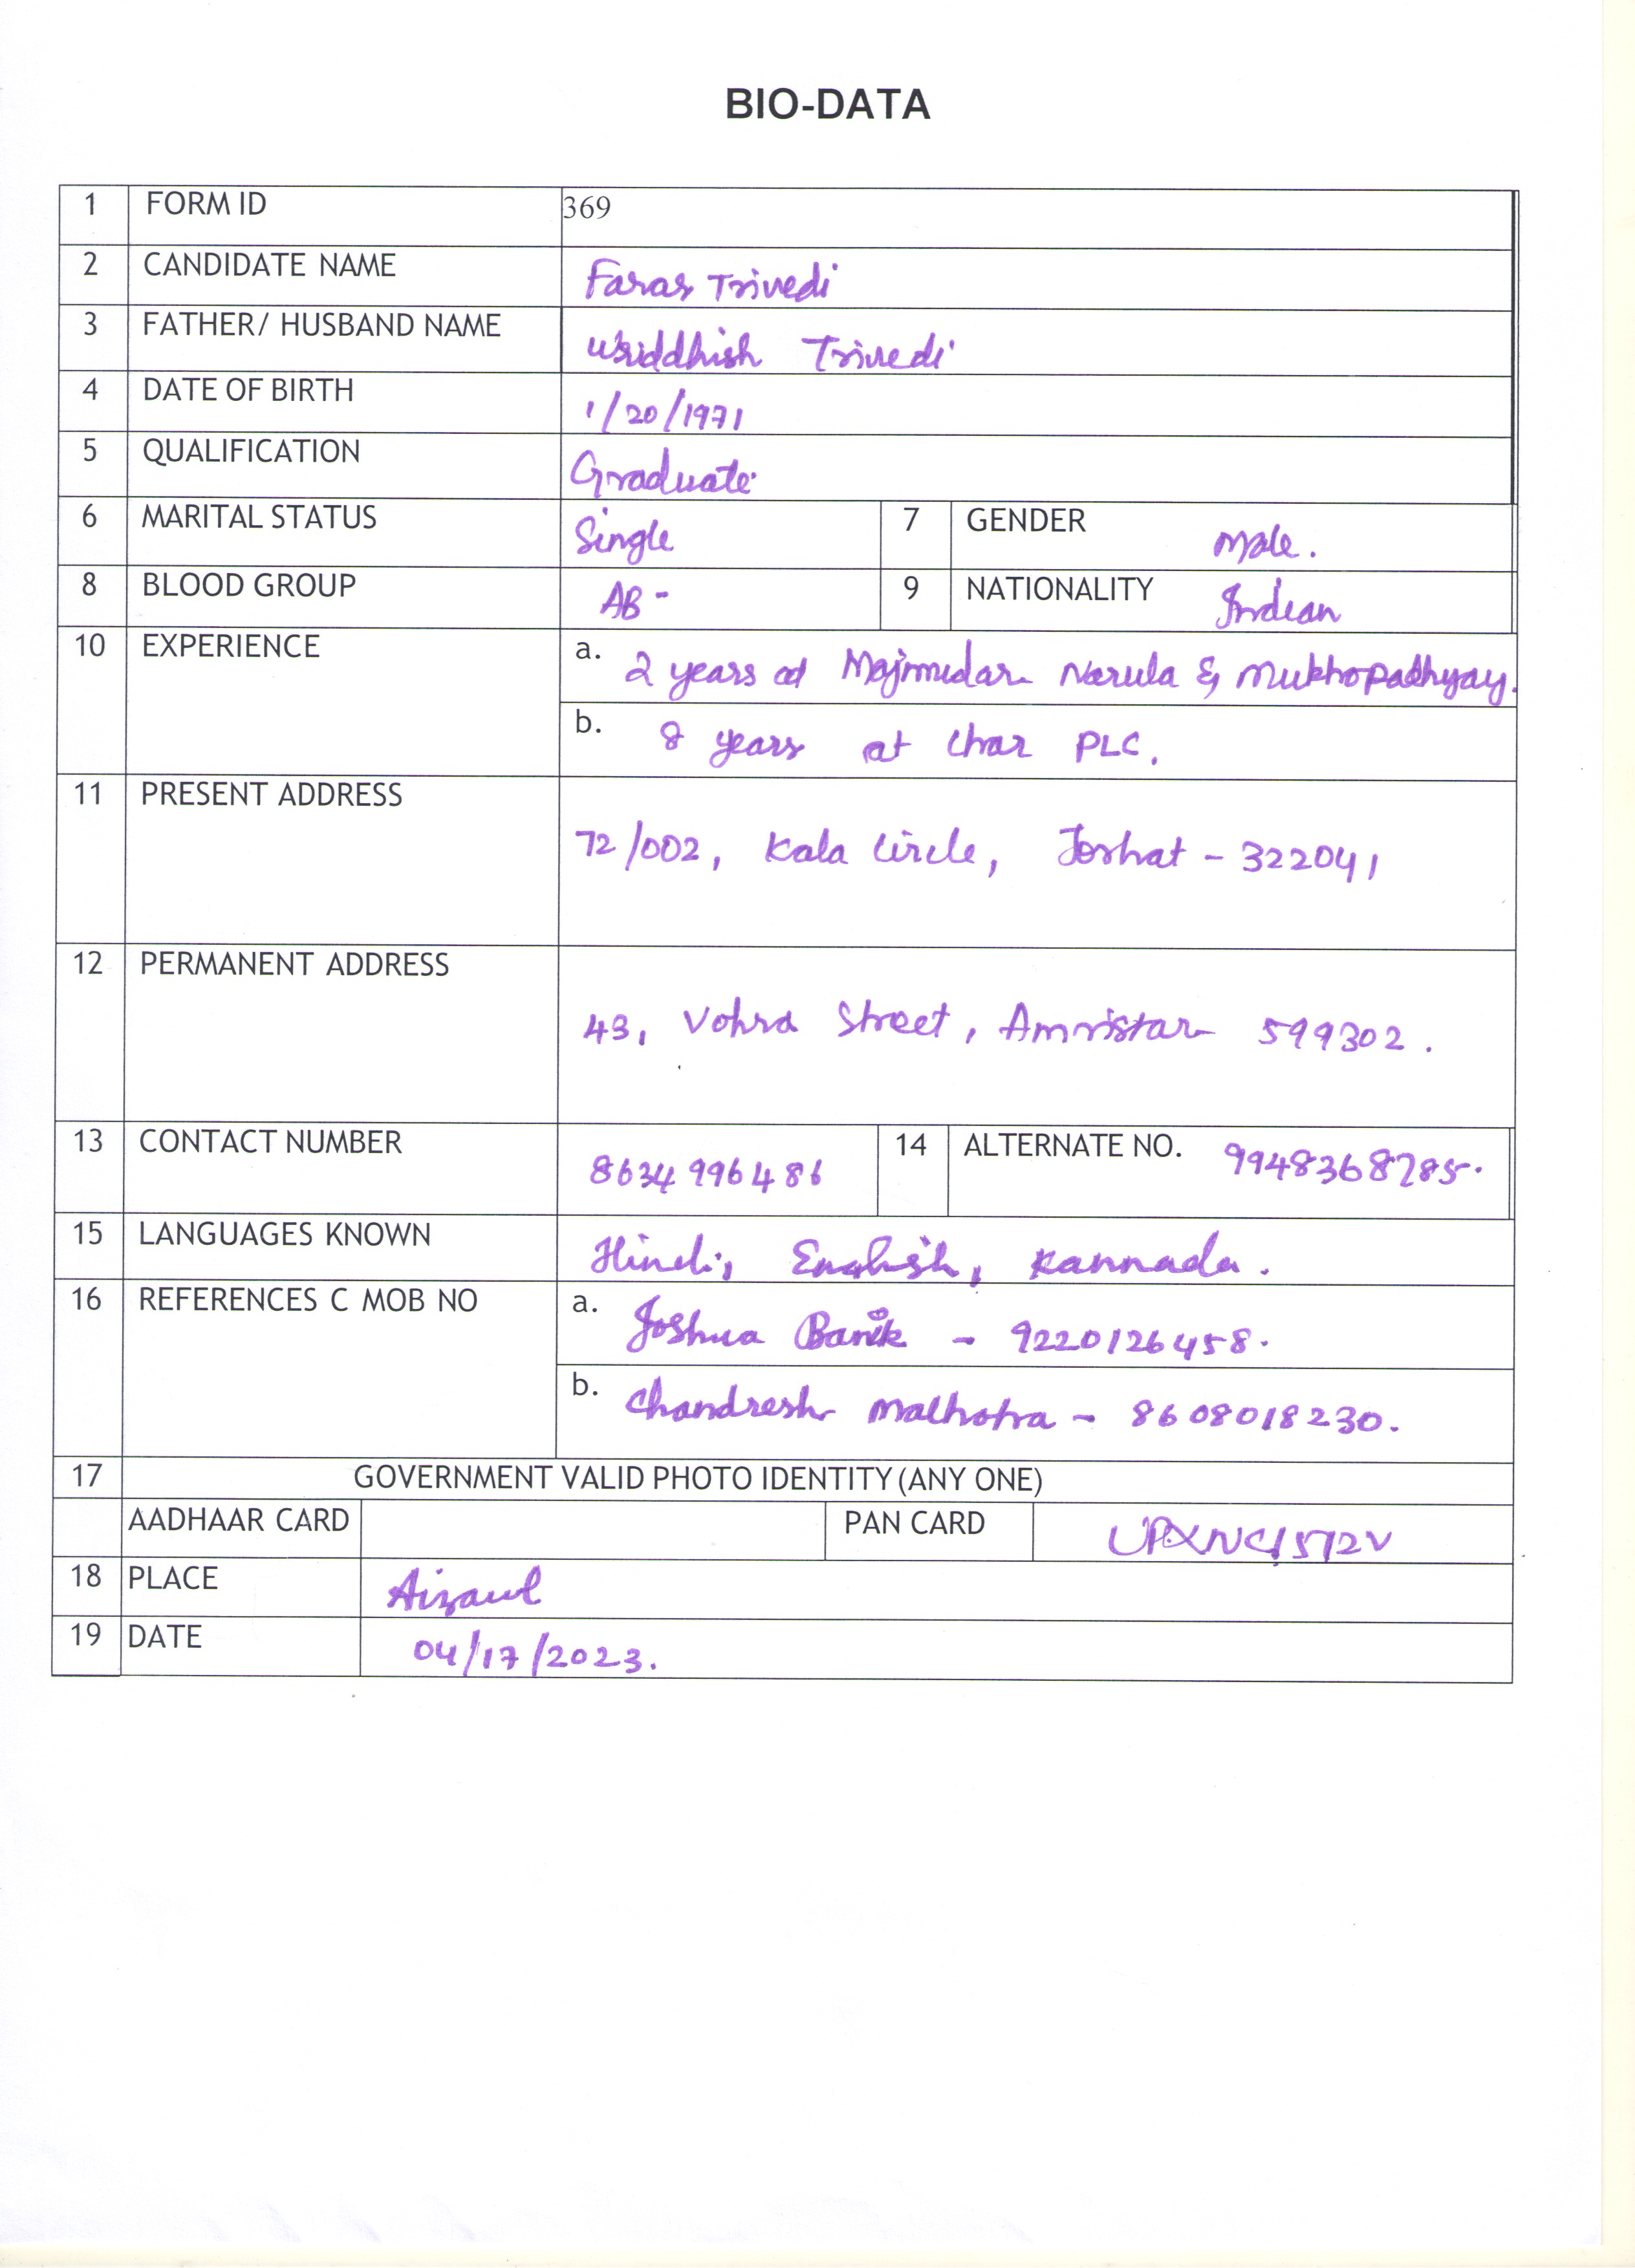 BIO-DATA
1 FORM ID 369
2 CANDIDATE NAME Faras Trivedi
3 FATHER/ HUSBAND NAME Wriddhish Trivedi
4 DATE OF BIRTH 1/20/1971
5 QUALIFICATION Graduate
6 MARITAL STATUS Single 7 GENDER Male.
8 BLOOD GROUP AB- 9 NATIONALITY Indian
10 EXPERIENCE a. 2 years at Majmudar Narula & Mukhopadhyay.
b. 8 years at Char PLC.
11 PRESENT ADDRESS
72/002, Kala Circle, Jorhat - 322041
12 PERMANENT ADDRESS
43, Vohra Street, Amristar 599302.
13 CONTACT NUMBER 8634996486 14 ALTERNATE NO. 9948368785.
15 LANGUAGES KNOWN Hindi, English, Kannada.
16 REFERENCES C MOB NO a. Joshua Banik - 9220126458.
b. Chandresh Malhotra - 8608018230.
17 GOVERNMENT VALID PHOTO IDENTITY (ANY ONE)
AADHAAR CARD PAN CARD
18 PLACE Aizawl
19 DATE 04/17/2023.